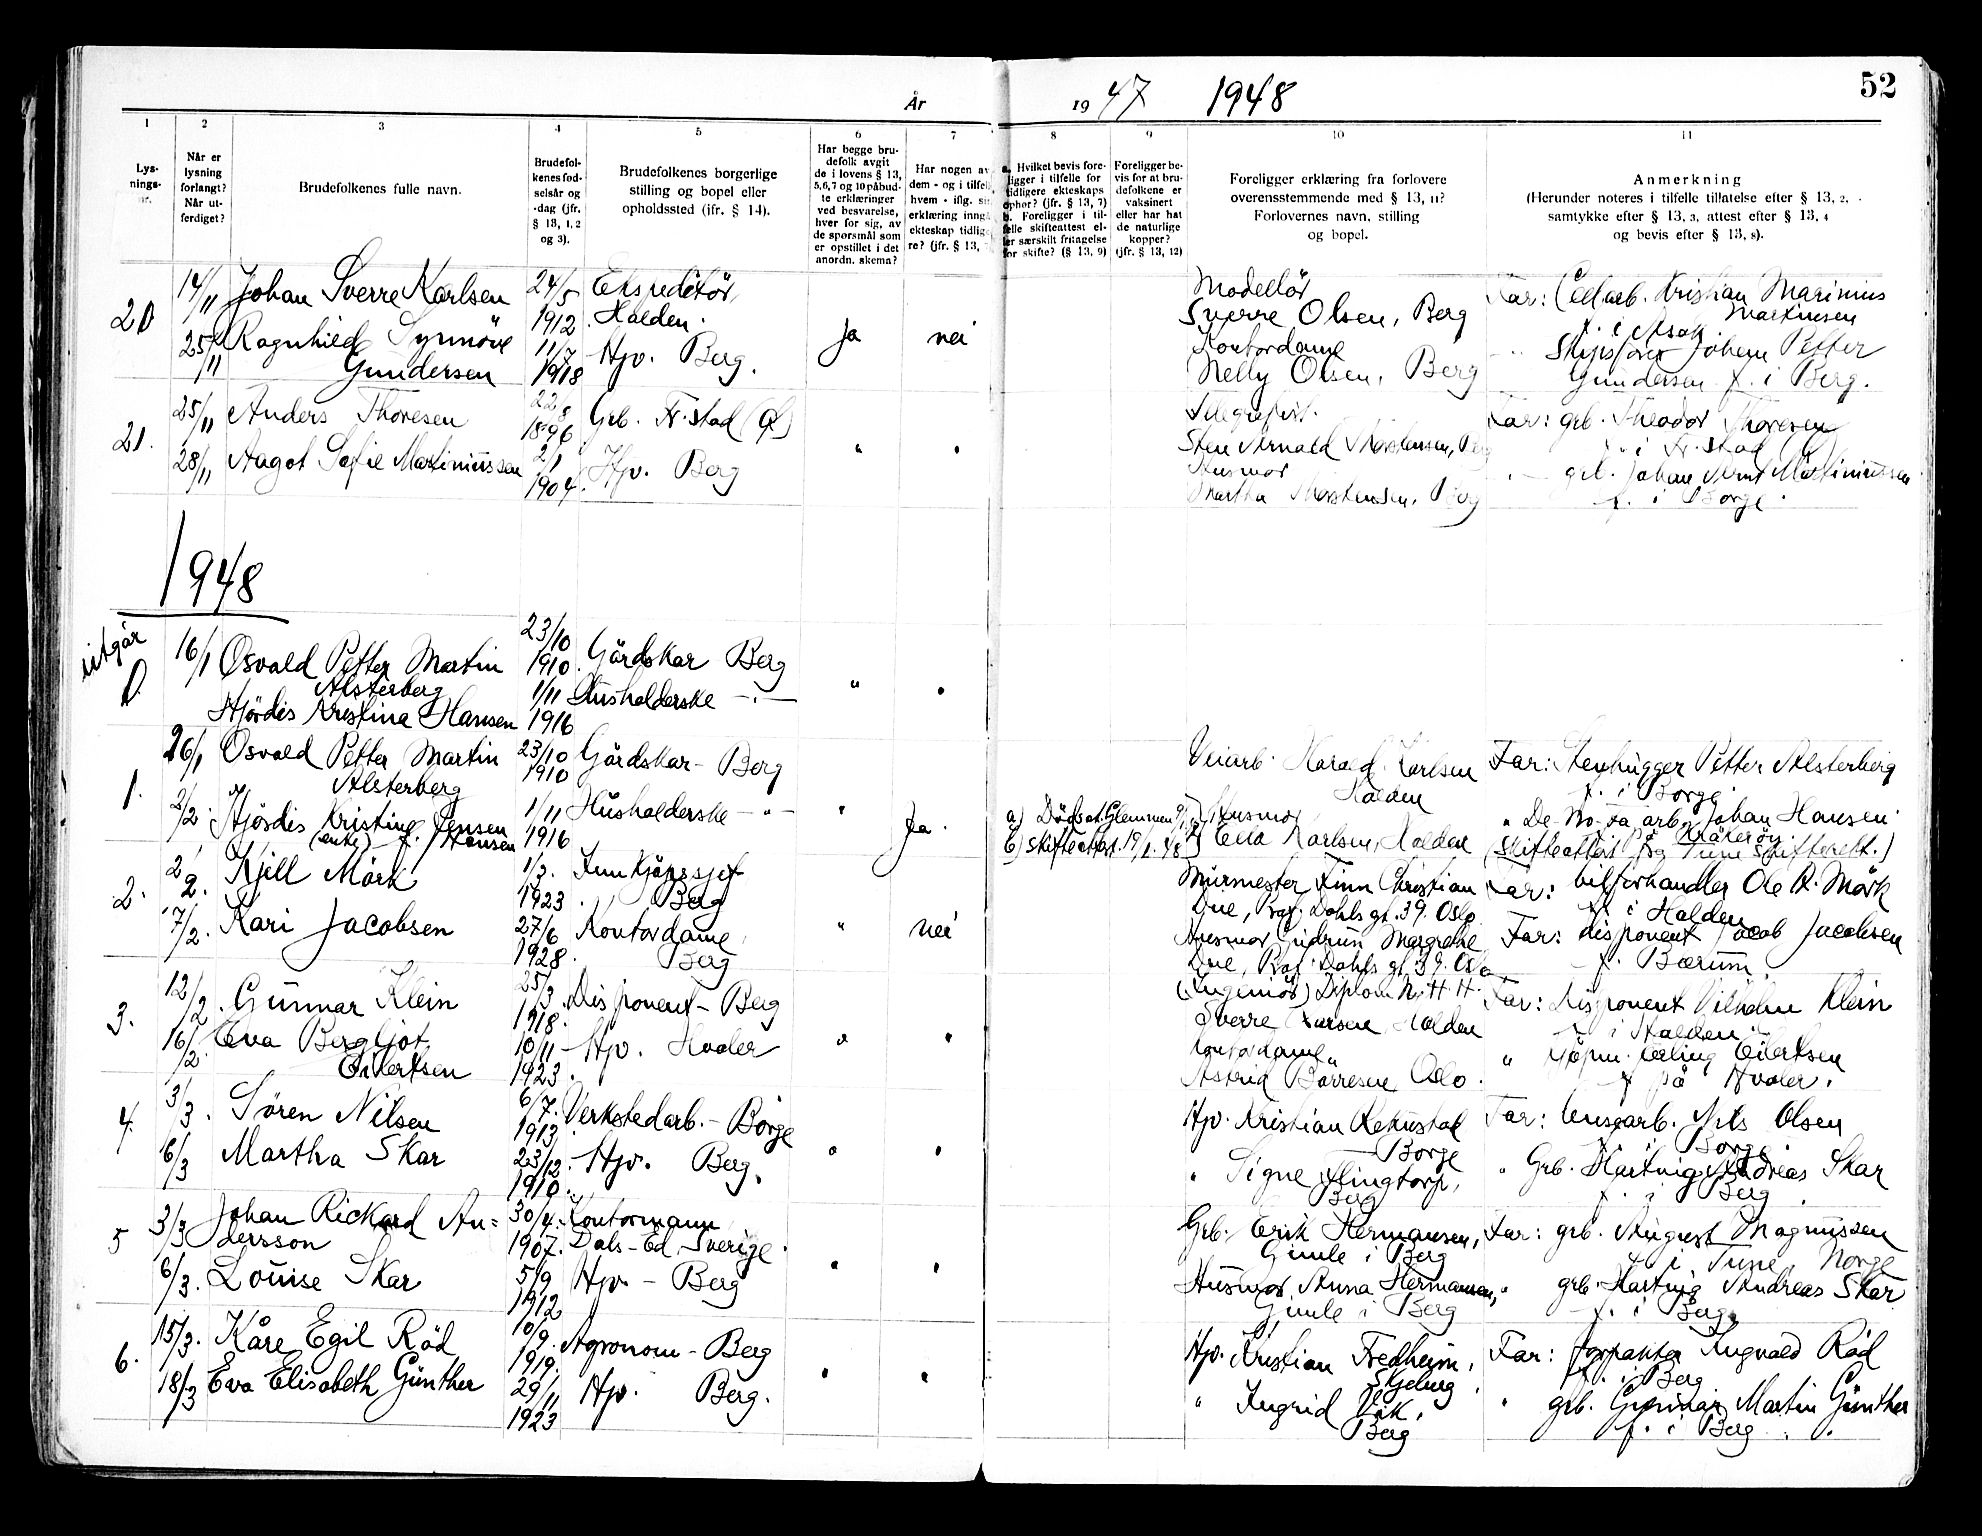 År 19 47 1948 52
1 2 3 4 5 6 7 8 9 10 11
Lys-
nings-
nr.
Når er
lysning
forlangt?
Når ut-
ferdiget?
Brudefolkenes fulle navn.
Brudefol-
kenes fød-
selsår og
-dag (jfr.
§ 13, 1, 2
og 3).
Brudefolkenes borgerlige
stilling og bopel eller
opholdssted (jfr. § 14).
Har begge bru-
defolk avgit
de i lovens § 13,
5,6,7 og 10 påbud-
te erklæringer
ved besvarelse,
hver for sig, av
de spørsmål som
er opstillet i det
anordn. skema?
Har nogen av
dem - og i tilfel
hvem - iflg. sin
erklæring inngå
ekteskap tidlige
re? (jfr. § 13,
a. Hvilket bevis fore-
ligger i tilfelle for
tidligere ekteskaps
ophør? (jfr. § 13, 7)
b. Foreligger i til-
felle skifteattest el-
ler særskilt fritagelse
for skifte? (§ 13, 9)
Foreligger be-
vis for at bru-
defolkene er
vaksinert
eller har hat
de naturlige
kopper?
(jfr. § 13, 12)
Foreligger erklæring fra forlovere
overensstemmende med § 13, 11?
Forlovernes navn, stilling
og bopel.
Anmerkning
(Herunder noteres i tilfelle tillatelse efter § 13, 2,
samtykke efter § 13, 3, attest efter § 13, 4
og bevis efter § 13, 8).
20 14/11 Johan Sverre Karlsen 24/5 1912 Ekspeditör, Halden. ja nei
25/11 Ragnhild Synnöve Gundersen 11/7 1918 Hjv. Berg.
Modellör
Sverre Olsen, Berg
Kontordame
Nelly Olsen, Berg
Far: Cell.arb. Kristian Marinius
Martinsen
f. i Asak
" Skipsförer Johan Petter
Gundersen f. i Berg.
21. 25/11 Anders Thoresen 22/8 1896 Grb. Fr.stad (Ø) " "
28/11 Aagot Sofie Martiniussen 2/1 1904. Hjv. Berg
Telegrafist.
Sten Arnold Thorstensen, Berg
Husmor
Martha Thorstensen, Berg
Far: grb. Theodor Thoresen
f. i Fr.stad
" grb. Johan Arnt Martiniussen
f. i Borge
1948
utgår 0. 16/1 Osvald Petter Martin
Alsterberg 23/10 1910. Gårdskar Berg " "
Hjördis Kristina Hansen 1/11 1916 Husholderske - " -
1. 26/1 Osvald Petter Martin
Alsterberg 23/10 1910 Gårdskar - Berg " Ja.
2/2. Hjördis Kristine Jensen
(enke) f. Hansen 1/11 1916 Husholderske - " -
a) Dödsat. Glemmen
b) skifteattest. 19/1. 48
Veiarb. Harald Karlsen
Halden
Husmor
Ella Karlsen, Halden
Far: Stenhugger Petter Alsterberg
f. i Borge
" De-No-Fa arb. Johan Hansen
Kråkeröy
(Skifteattest fra Tune skifterett.)
2. 2/2. Kjell Mörk 1/3. 1923. Innkjöpssjef Berg " nei
7/2. Kari Jacobsen 27/6 1928. Kontordame, Berg
Murmester Finn Christian
Due, Prof. Dahls gt. 39. Oslo
Husmor Gudrun Margrethe
Due, Prof. Dahls gt. 39. Oslo
Far: bilforhandler Ole R. Mörk
f. i Halden
Far: disponent Jacob Jacobsen
f. Bærum.
3. 12/2. Gunnar Klein 25/3. 1918. Disponent - Berg " "
16/2. Eva Bergljot
Eilertsen 10/11 1923. Hjv. Hvaler
(Ingeniör) Diplom N.H.H.
Sverre Larsen Halden
Kontordame
Astrid Börresen Oslo.
Far: Disponent Vilhelm Klein
f. i Halden
" Kjöpm. Erling Eilertsen
f. på Hvaler.
4. 3/3. Sören Nilsen 6/7. 1913. Verkstedarb. - Borge " "
6/3 Martha Skar 23/12. 1910. Hjv. Berg.
Hjv. Kristian
Borge
" Signe Flingtorp,
Berg
Far: Nils Olsen
f. i Borge
" Grb. Hartvig Andreas Skar
f. i Berg.
5 3/3 Johan Rickard An=
dersson 30/4. 1907. Kontormann
Dals-Ed, Sverige. " "
6/3. Louise Skar 5/9 1912 Hjv. - Berg
Grb. Erik Hermansen,
Gimle i Berg
Husmor Anna Hermansen,
Gimle i Berg
Far: grb. August Magnussen
f. i Tune, Norge
" grb. Hartvig Andreas Skar
f. i Berg.
6. 15/3. Kåre Egil Röd 10/9. 1919. Agronom - Berg " "
18/3 Eva Elisabeth Günther 29/11 1923 Hjv. Berg.
Hjv. Kristian Fredheim,
Skjeberg.
" Ingrid Vik,
Berg
Far: forpakter Ingvald Röd
f. i Berg
" grb. Gunnar Martin Günther
f. i Berg.